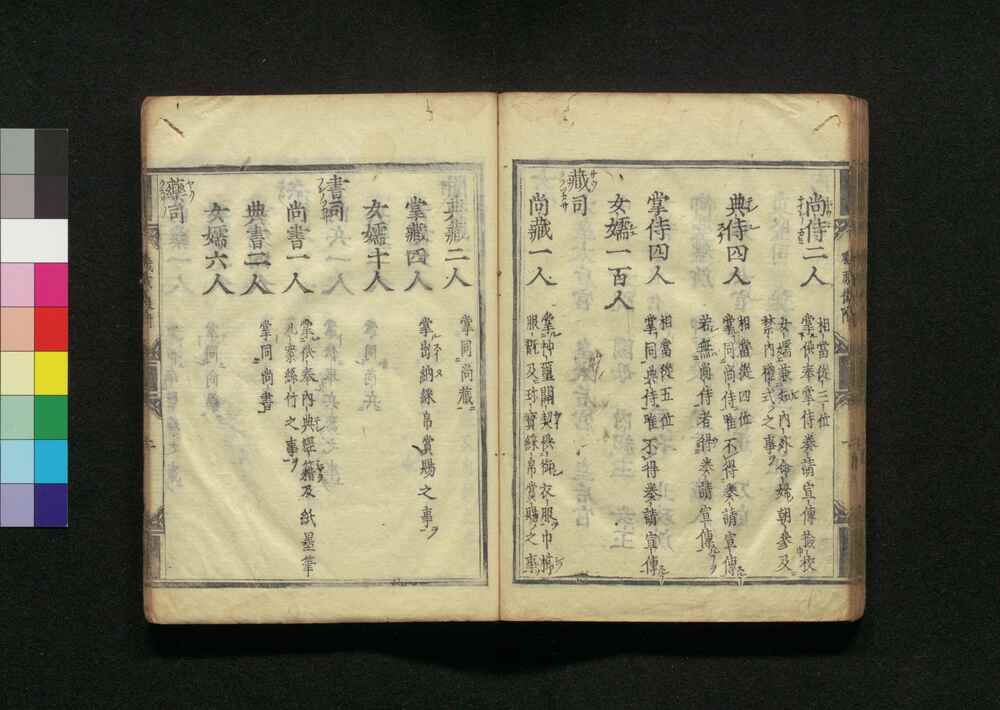 尚侍二人
相當從三位
掌供奉常侍奏請宣傳檢校
女孺兼知內外命婦朝參及
禁內禮式之事
典侍四人
相當從四位
掌同尚侍唯不得奏請宣傳
若無尚侍者得奏請宣傳
掌侍四人
相當從五位
掌同典侍唯不得奏請宣傳
女孺一百人
藏司
尚藏一人
掌神璽關契供御衣服巾櫛
服翫及珍寶綵帛賞賜之事
典藏二人
掌同尚藏
掌藏四人
掌出納綵帛賞賜之事
女孺十人
書司
尚書一人
掌供奉內典經籍及紙墨筆
几案絲竹之事
典書二人
掌同尚書
女孺六人
藥司